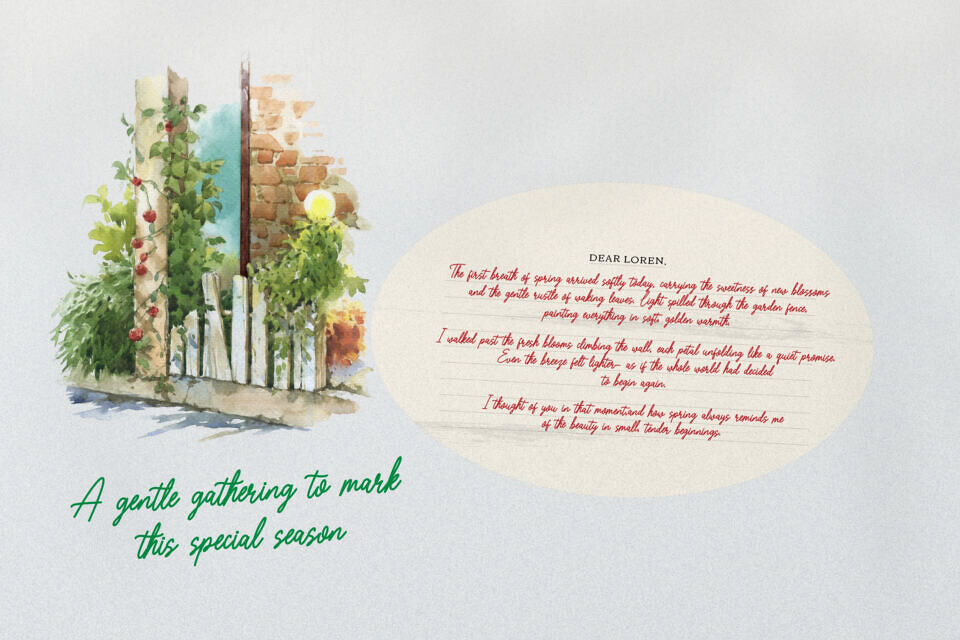 DEAR LOREN,
The first breath of spring arrived softly today, carrying the sweetness of new blossoms
and the gentle rustle of waking leaves. Light spilled through the garden fence,
painting everything in soft, golden warmth.
I walked past the fresh blooms climbing the wall, each petal unfolding like a quiet promise.
Even the breeze felt lighter— as if the whole world had decided
to begin again.
I thought of you in that moment,and how spring always reminds me
of the beauty in small, tender beginnings.
A gentle gathering to mark
this special season